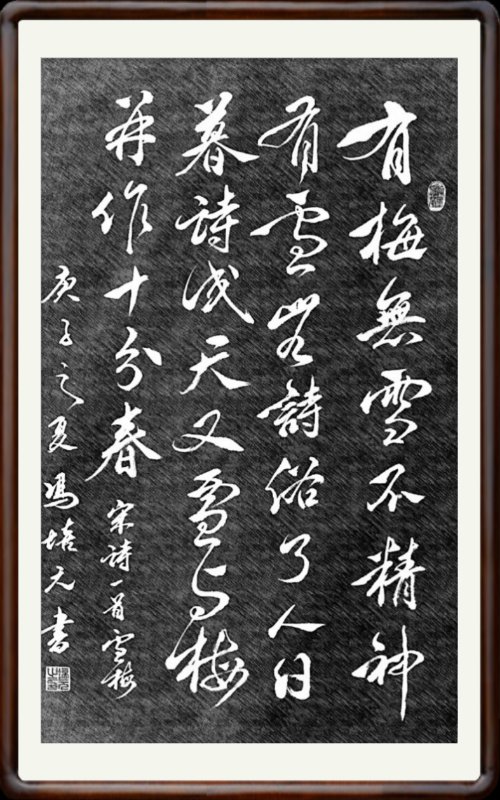 有梅無雪不精神
有雪無詩俗了人日
暮詩成天又雪与梅
并作十分春 宋詩一首雪梅
庚子之夏冯培元書